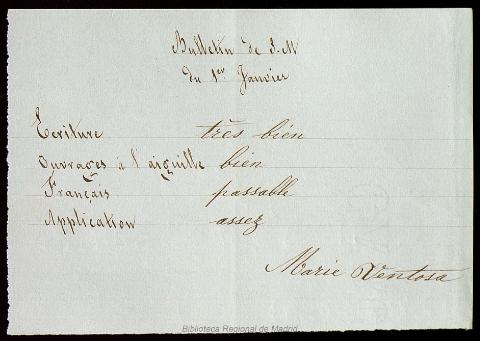 Bulletin de S. M
du 1er Janvier
Ecriture très bien
Ouvrages à l'aiguille bien
Français passable
Application assez
Marie Ventosa
Biblioteca Regional de Madrid